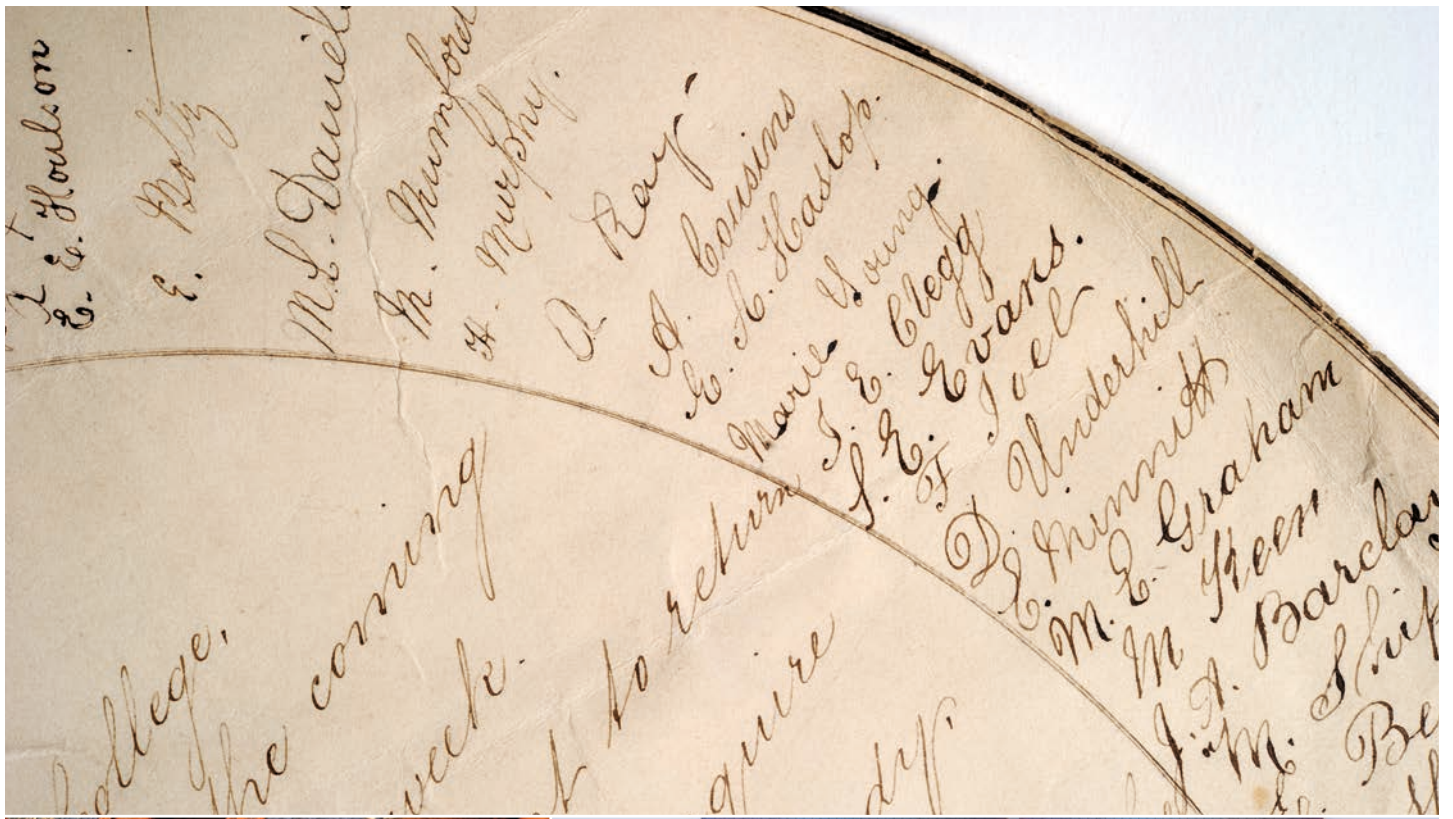 E. E. Houlson
E. Boltz
M. L. Daniel
M. Mumford
H. Murphy.
A Ray
A. Cousins
E. A. Haslop.
Marie Young.
T. E. Clegg
S. E. Evans.
F Joel
D. Underhill
E. Minnitt
M. E. Graham
M Keen
J. A. Barclay
M.
E. Be
College,
the coming
week.
to return
quire
dy.